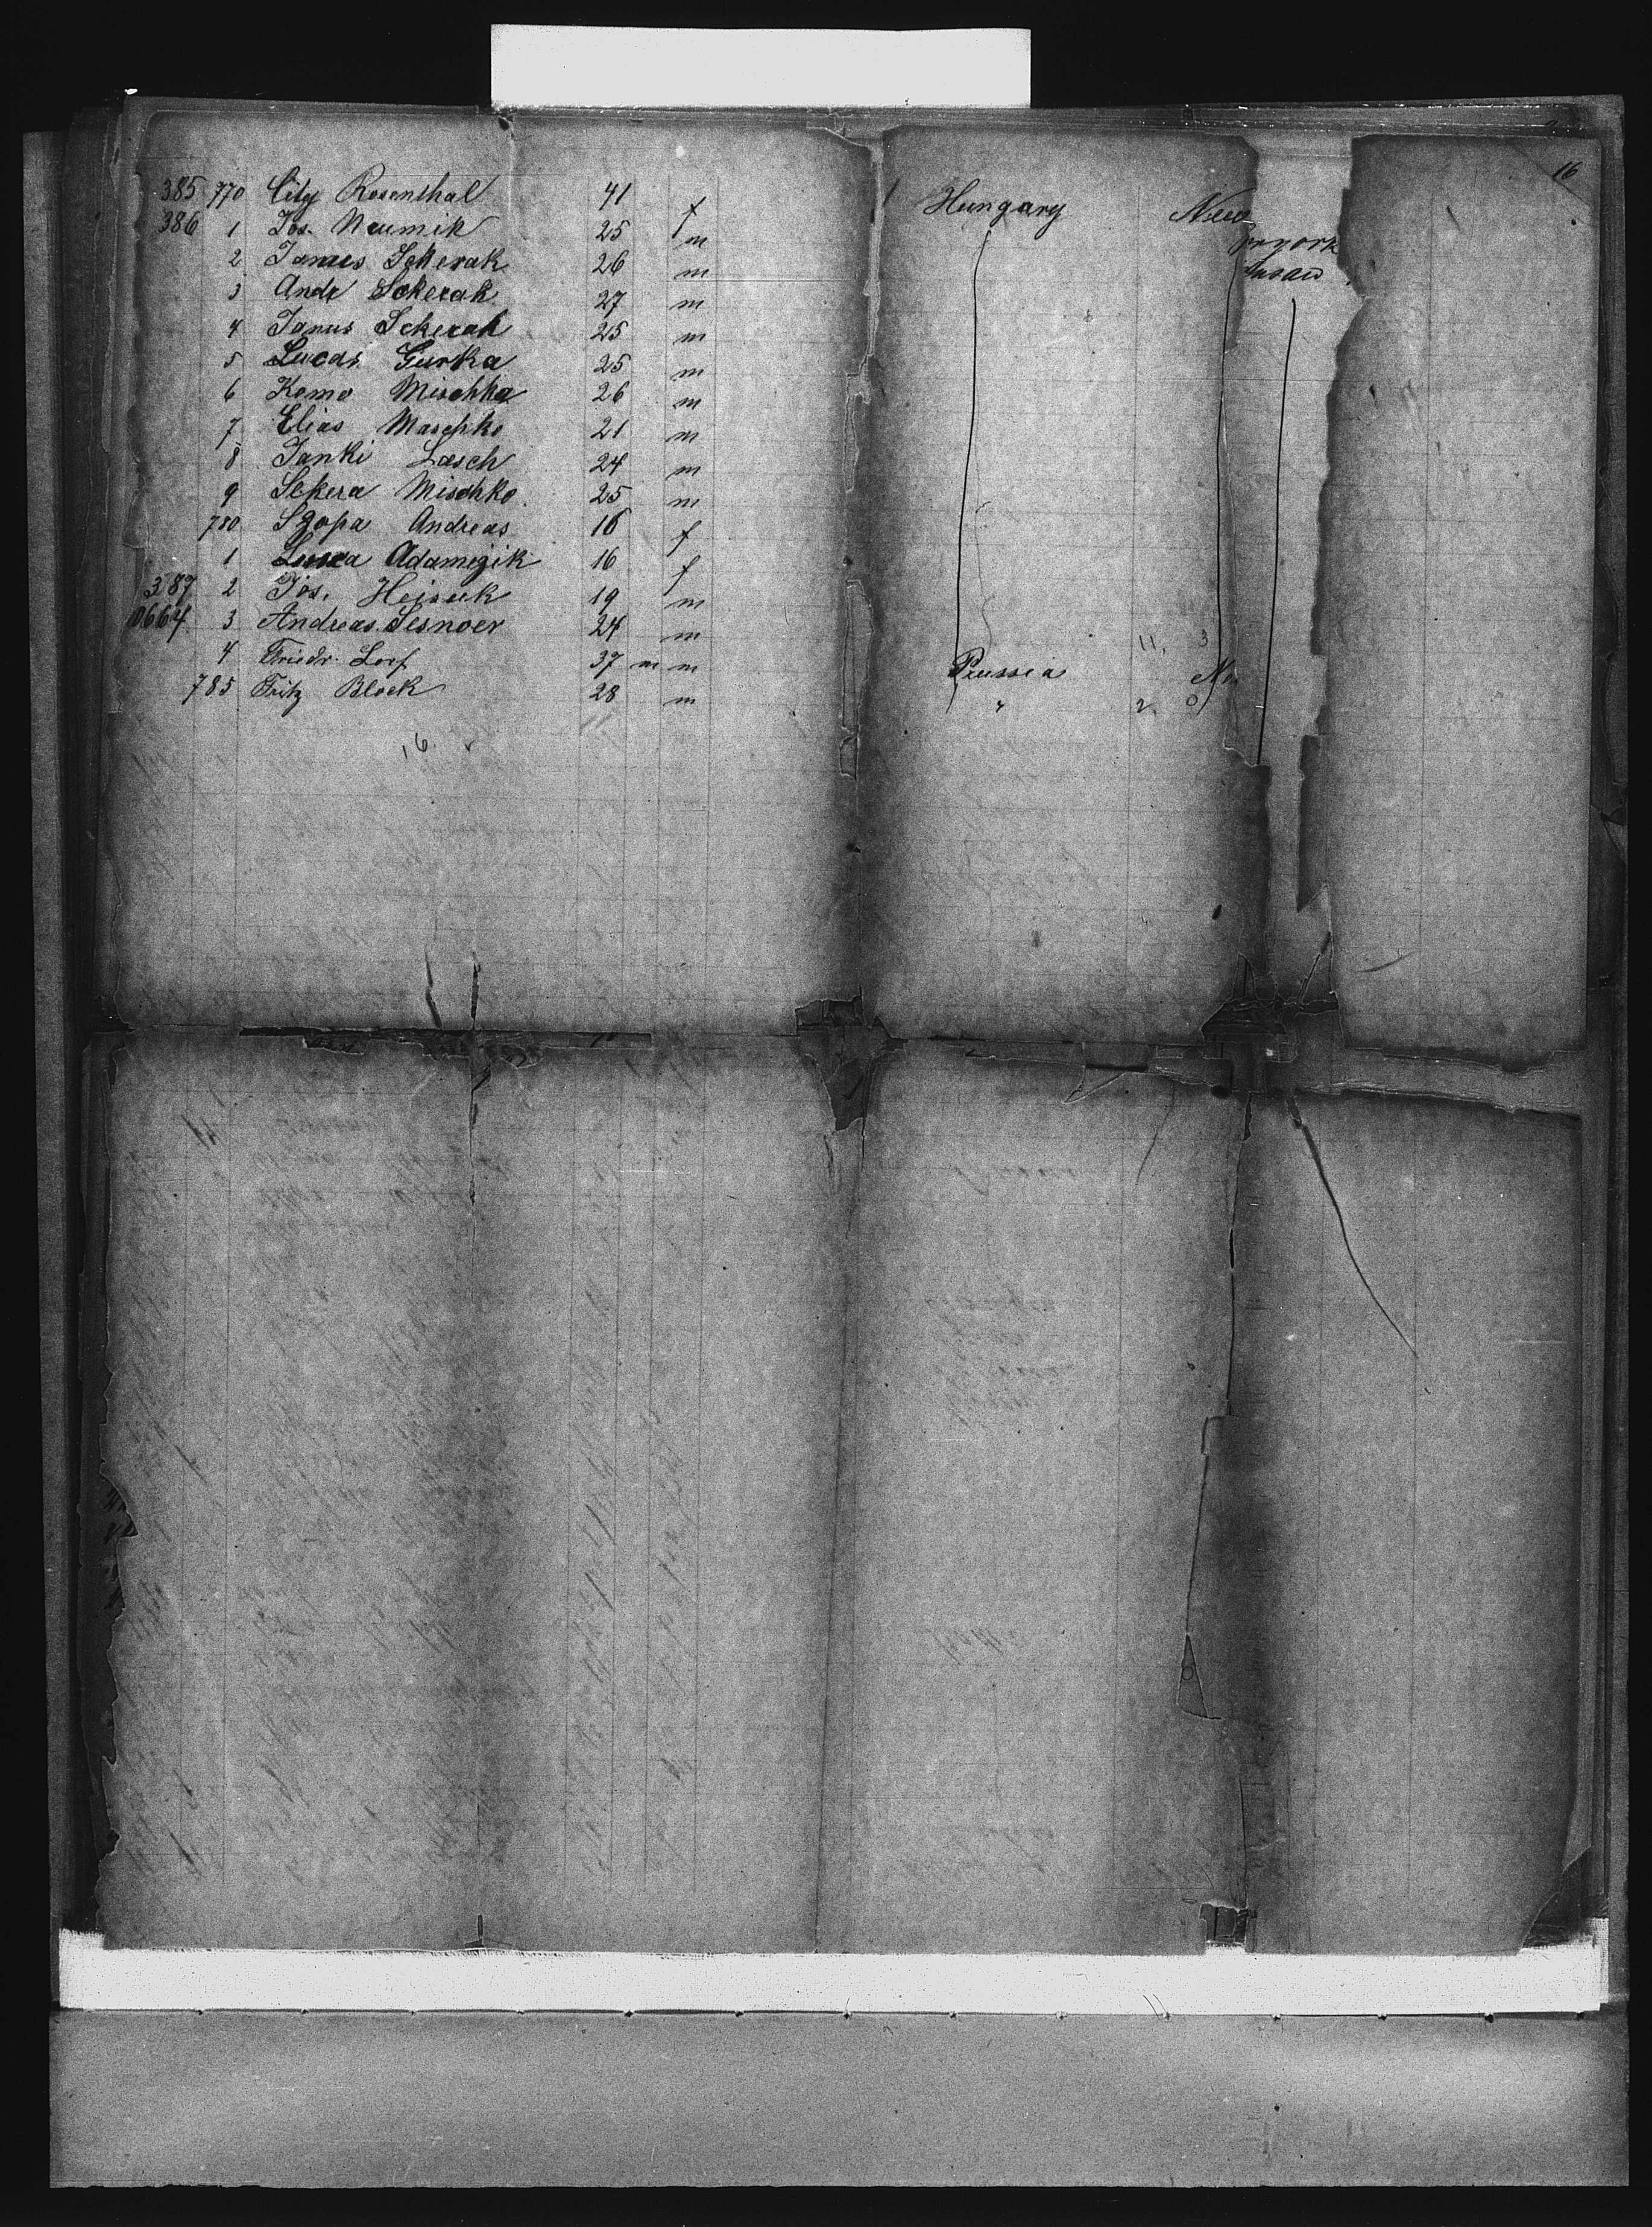 16
385 770 Cily Rosenthal 41 f Hungary New
386 1 Jos. Neumik 25 m
2 Janus Sckerak 26 m
3 Andr Sckerak 27 m
4 Janus Sckerak 25 m
5 Lucas Gurka 25 m
6 Komo Mischka 26 m
7 Elias Maschko 21 m
8 Janki Lasch 24 m
9 Sckera Mischko 25 m
780 Szopa Andreas 16 f
1 Adamezik 16 f
387 2 Jos. Heisuk 19 m
0664 3 Andreas Lesnoer 24 m 11, 3
4 Friedr. Lorf 37 m m Prussia
785 Fritz Block 28 m " 2, 0
16